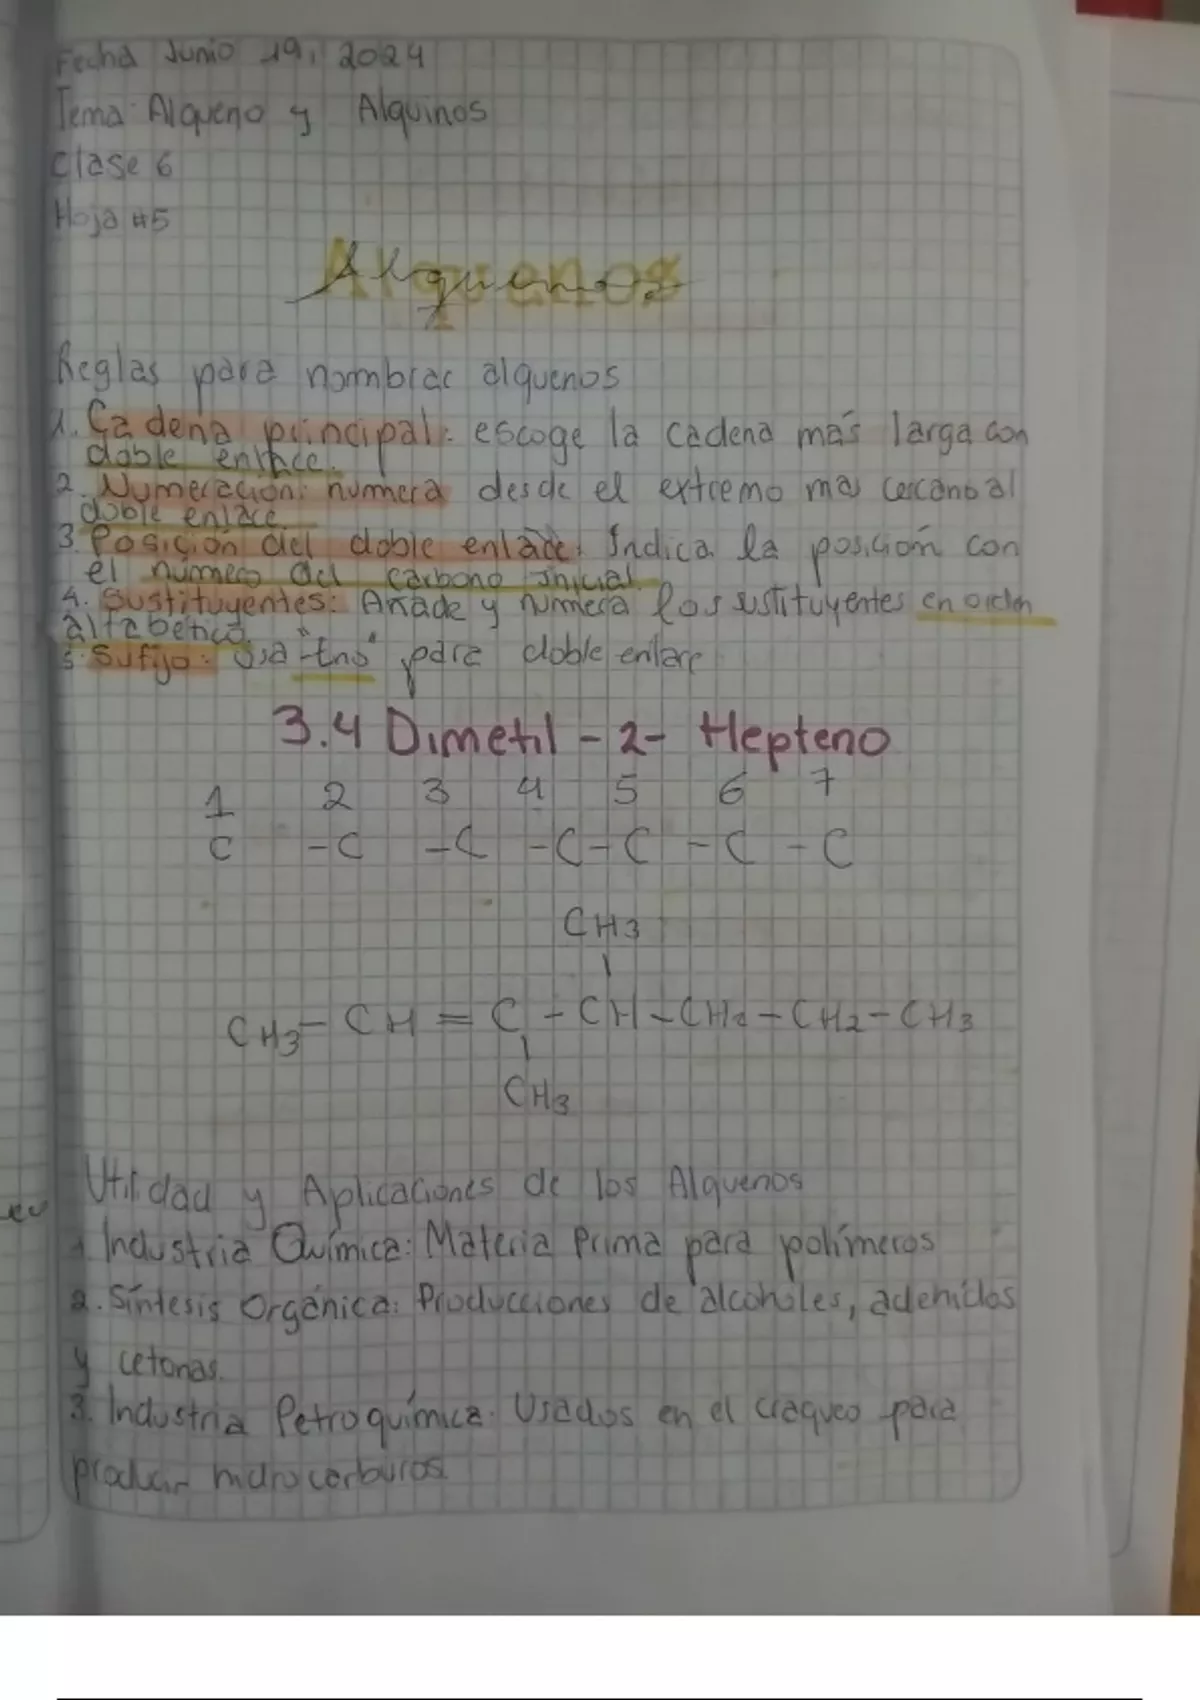 Fecha Junio 19, 2024
Tema: Alqueno y Alquinos
Clase 6
Hoja #5
Alquenos
Reglas para nombrar alquenos
1. Cadena principal: escoge la cadena más larga con
doble enlace.
2. Numeración: numera desde el extremo mas cercano al
doble enlace.
3. Posición del doble enlace: Indica la posición con
el numero del carbono inicial.
4. Sustituyentes: Añade y numera los sustituyentes en orden
alfabetico.
5. Sufijo: Usa "-eno" para doble enlace
3.4 Dimetil - 2 - Hepteno
1 2 3 4 5 6 7
C - C - C - C - C - C - C
CH3
CH3 - CH = C - CH - CH2 - CH2 - CH3
CH3
Utilidad y Aplicaciones de los Alquenos
1. Industria Química: Materia Prima para polímeros
2. Síntesis Orgánica: Producciones de alcoholes, adehidos
y cetonas.
3. Industria Petroquímica: Usados en el craqueo para
producir hidrocarburos.